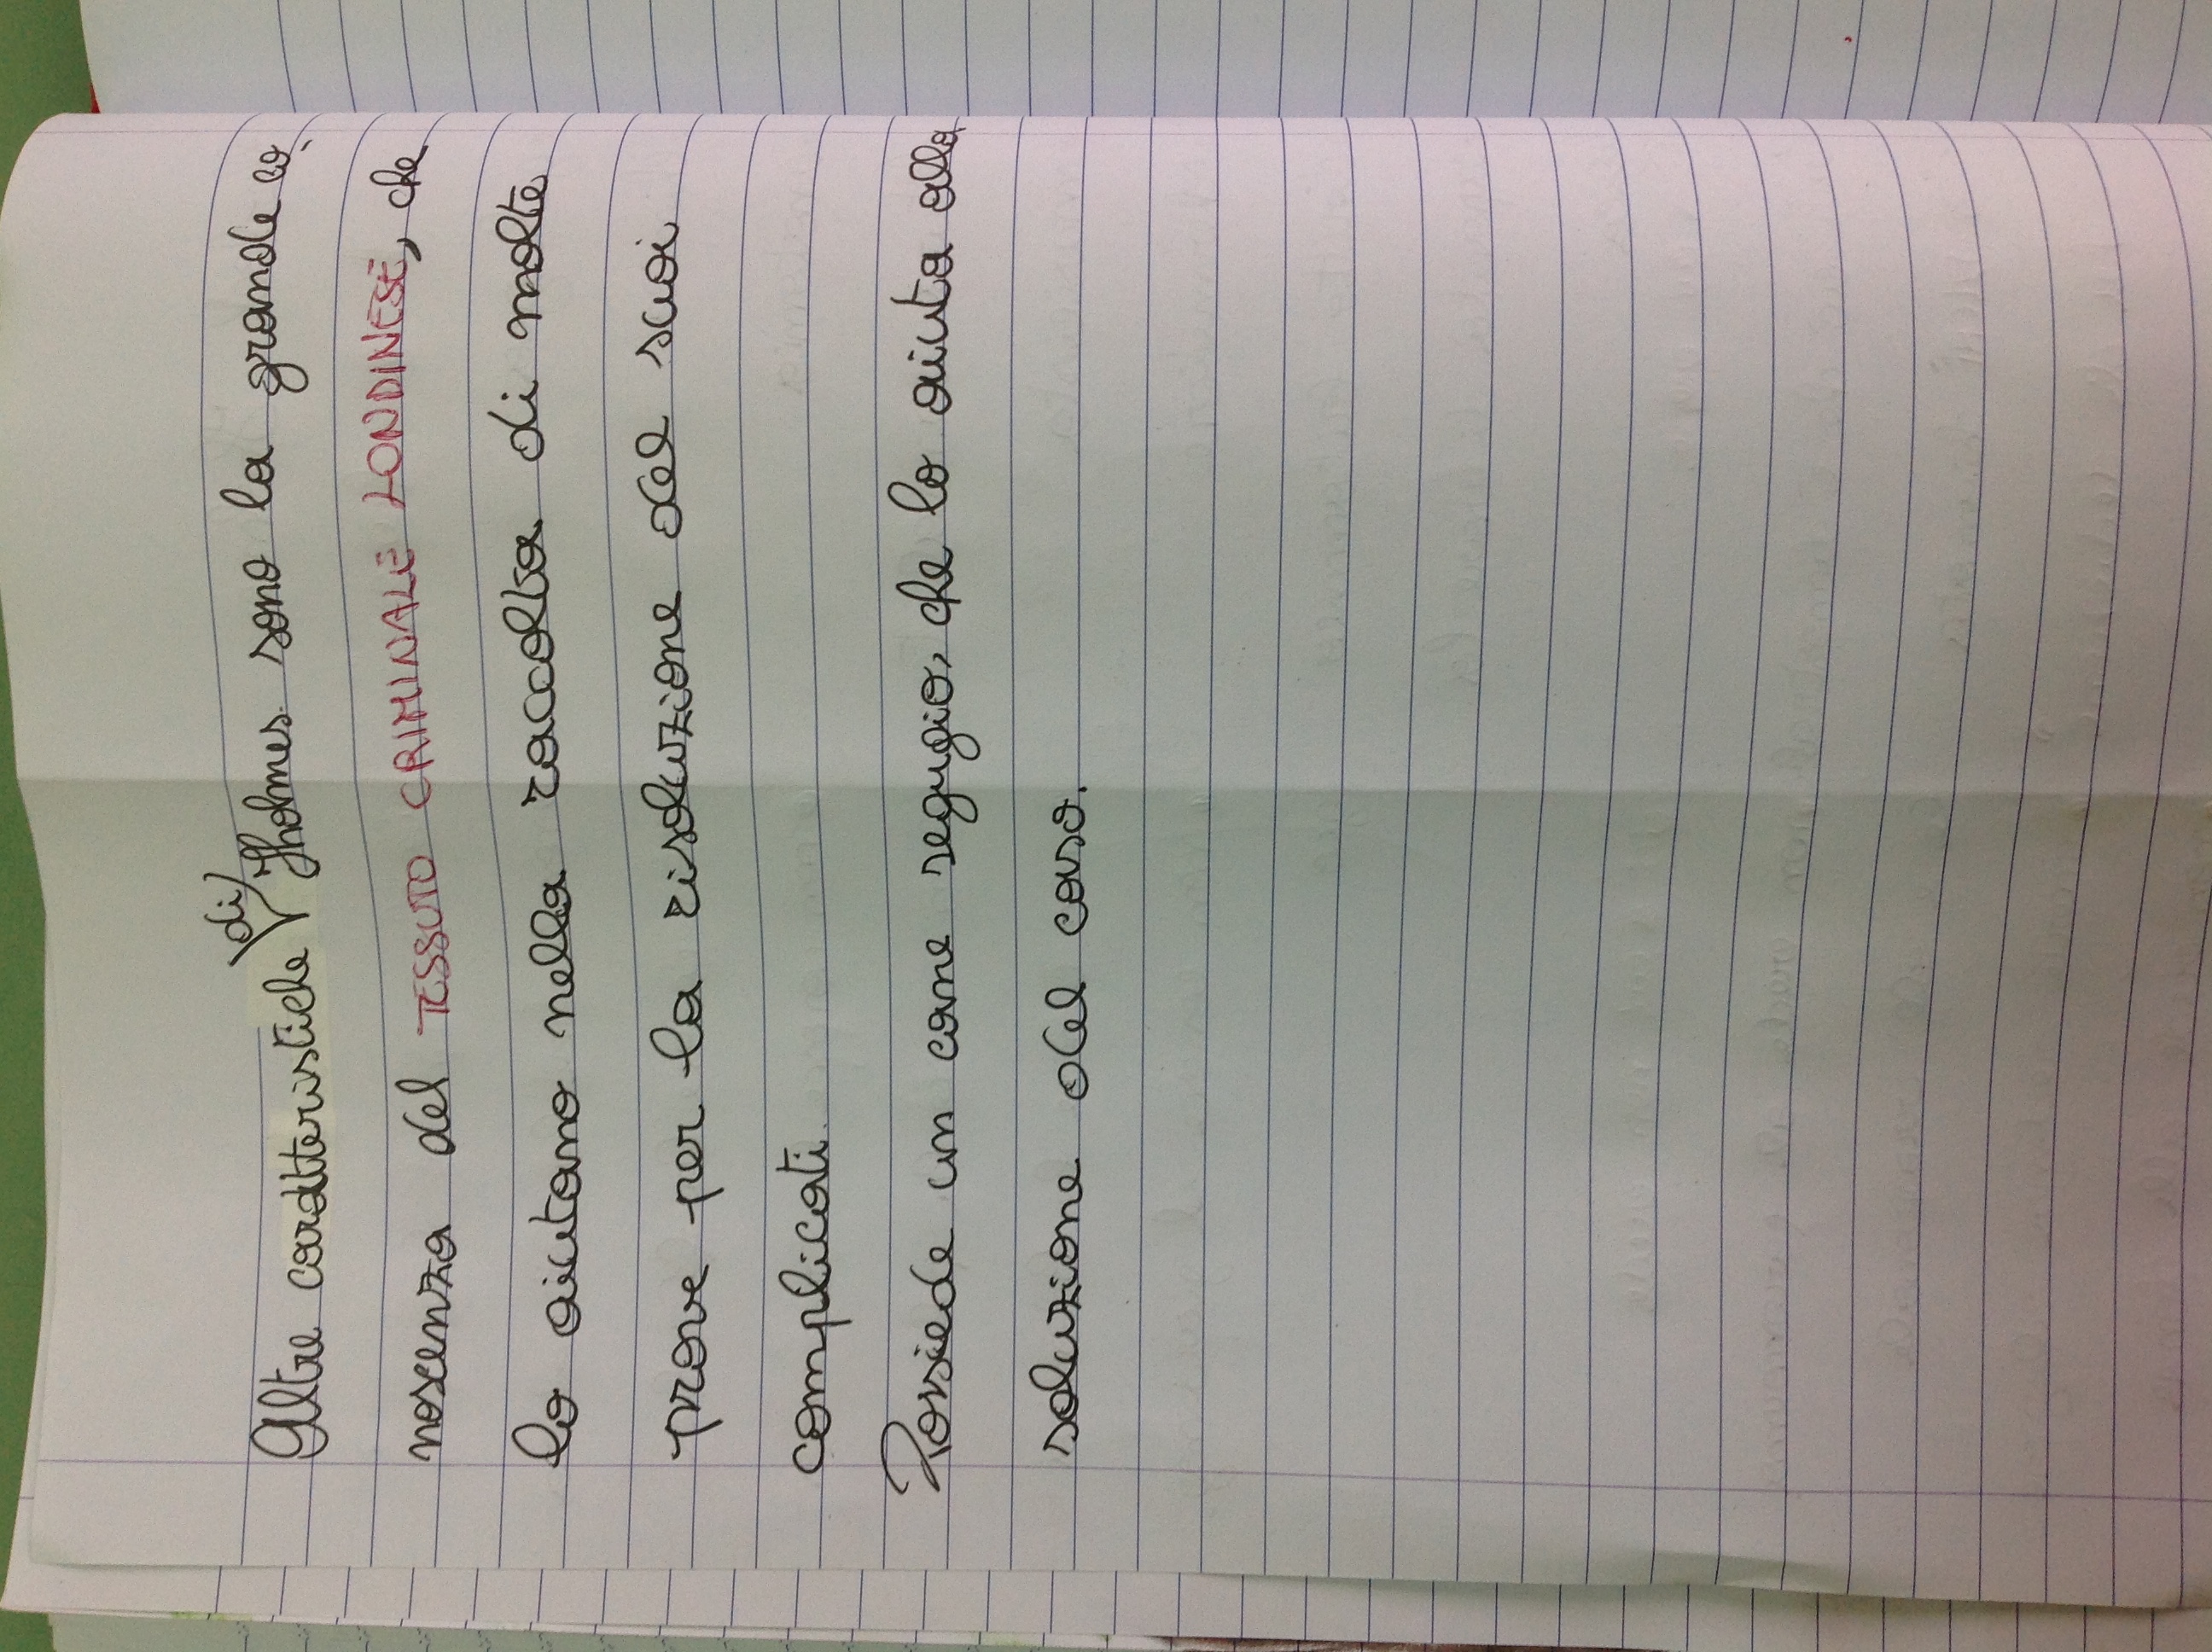 Altre caratteristiche di Hholmes sono la grande co-
noscenza del TESSUTO CRIMINALE LONDINESE, che
lo aiutano nella racolta di molte
prove per la risoluzione del suoi
complicati.
Possiede un cane segugio, che lo aiuta alla
soluzione del caso.